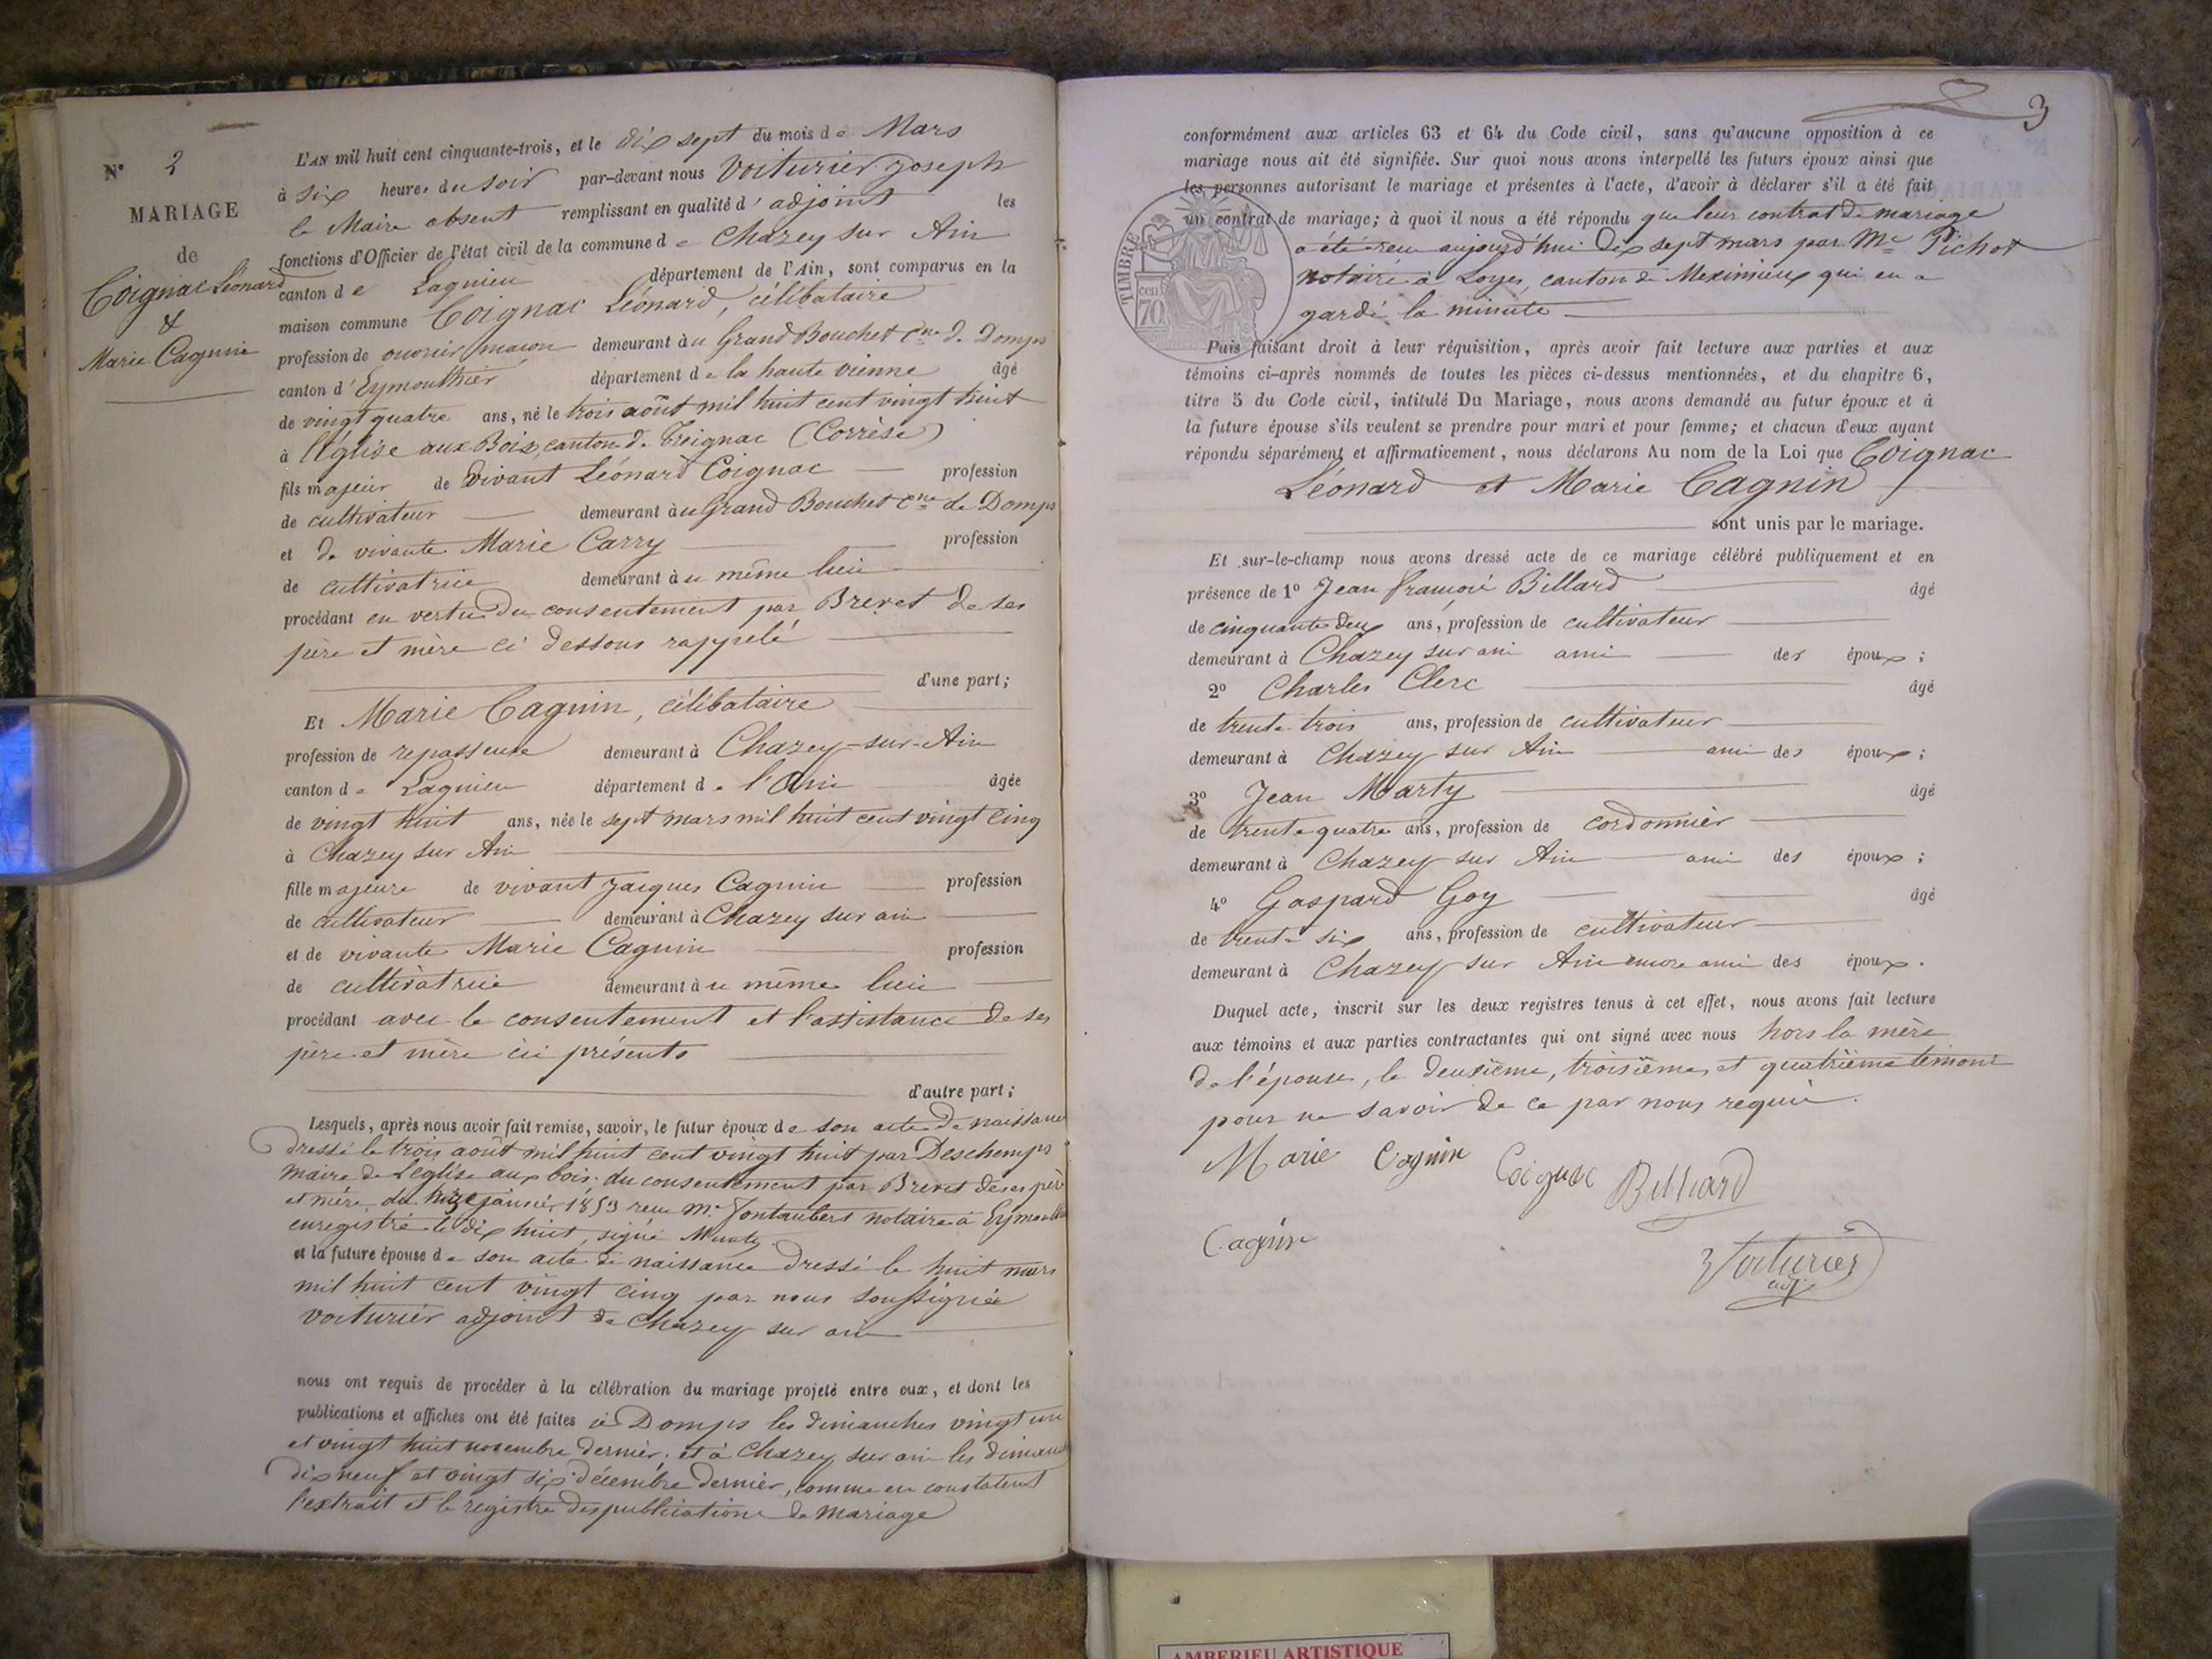 N° 2
MARIAGE
de
Coignac Léonard
&
Marie Cagnin
L'AN mil huit cent cinquante-trois, et le dix sept du mois de Mars
à six heures du soir par-devant nous Voiturier Joseph
le Maire absent remplissant en qualité d'adjoint les
fonctions d'Officier de l'état civil de la commune de Chazey sur Ain
canton de Lagnieu département de l'Ain, sont comparus en la
maison commune Coignac Léonard, célibataire
profession de ouvrier maçon demeurant au Grand Bouchet Cne de Domps
canton d'Eymouthier département de la haute vienne âgé
de vingt quatre ans, né le trois août mil huit cent vingt huit
à l'Église aux Bois, canton de Treignac (Corrèse)
fils majeur de vivant Léonard Coignac profession
de cultivateur demeurant au Grand Bouchet Cne de Domps
et de vivante Marie Carry profession
de cultivatrice demeurant au même lieu
procédant en vertu du consentement par Brevet de ses
père et mère ci dessous rappelé
d'une part;
Et Marie Cagnin, célibataire
profession de repasseuse demeurant à Chazey-sur-Ain
canton de Lagnieu département de l'Ain âgée
de vingt huit ans, née le sept mars mil huit cent vingt cinq
à Chazey sur Ain
fille majeure de vivant Jacques Cagnin profession
de cultivateur demeurant à Chazey sur ain
et de vivante Marie Cagnin profession
de cultivatrice demeurant au même lieu
procédant avec le consentement et l'assistance de ses
père et mère ici présents
d'autre part;
Lesquels, après nous avoir fait remise, savoir, le futur époux de son acte de naissance
dressé le trois août mil huit cent vingt huit par Deschemps
maire de Léglise aux bois; du consentement par Brevet de ses père
et mère, du janvier 1853 reçu Me Fontaubert notaire à Eymouthier
enregistré le dix huit, signé
et la future épouse de son acte de naissance dressé le huit mars
mil huit cent vingt cinq par nous soussigné
voiturier adjoint de Chazey sur ain
nous ont requis de procéder à la célébration du mariage projeté entre eux, et dont les
publications et affiches ont été faites à Domps les dimanches vingt un
et vingt huit novembre dernier, et à Chazey sur ain les dimanches
dix neuf et vingt six décembre dernier, comme en constatent
l'extrait et le registre des publications de mariage
3
conformément aux articles 63 et 64 du Code civil, sans qu'aucune opposition à ce
mariage nous ait été signifiée. Sur quoi nous avons interpellé les futurs époux ainsi que
les personnes autorisant le mariage et présentes à l'acte, d'avoir à déclarer s'il a été fait
un contrat de mariage; à quoi il nous a été répondu que leur contrat de mariage
a été reçu aujourd'hui dix sept mars par Me Pichot
notaire à Loyes, canton de Meximieux qui en a
gardé la minute
TIMBRE
cen
70
Puis faisant droit à leur réquisition, après avoir fait lecture aux parties et aux
témoins ci-après nommés de toutes les pièces ci-dessus mentionnées, et du chapitre 6,
titre 5 du Code civil, intitulé Du Mariage, nous avons demandé au futur époux et à
la future épouse s'ils veulent se prendre pour mari et pour femme; et chacun d'eux ayant
répondu séparément et affirmativement, nous déclarons Au nom de la Loi que Coignac
Léonard et Marie Cagnin
sont unis par le mariage.
Et sur-le-champ nous avons dressé acte de ce mariage célébré publiquement et en
présence de 1° Jean françois Billard âgé
de cinquante deux ans, profession de cultivateur
demeurant à Chazey sur ain ami des époux;
2° Charles Clerc âgé
de trente trois ans, profession de cultivateur
demeurant à Chazey sur Ain ami des époux;
3° Jean Marty âgé
de trente quatre ans, profession de cordonnier
demeurant à Chazey sur Ain ami des époux;
4° Gaspard Goy âgé
de trente six ans, profession de cultivateur
demeurant à Chazey sur Ain encore ami des époux.
Duquel acte, inscrit sur les deux registres tenus à cet effet, nous avons fait lecture
aux témoins et aux parties contractantes qui ont signé avec nous hors la mère
de l'épouse, le deuxième, troisième et quatrième témoins
pour ne savoir de ce par nous requis.
Marie Cagnin Coignac Billiard
Cagnin
Voiturier
adj
AMBERIEU ARTISTIQUE